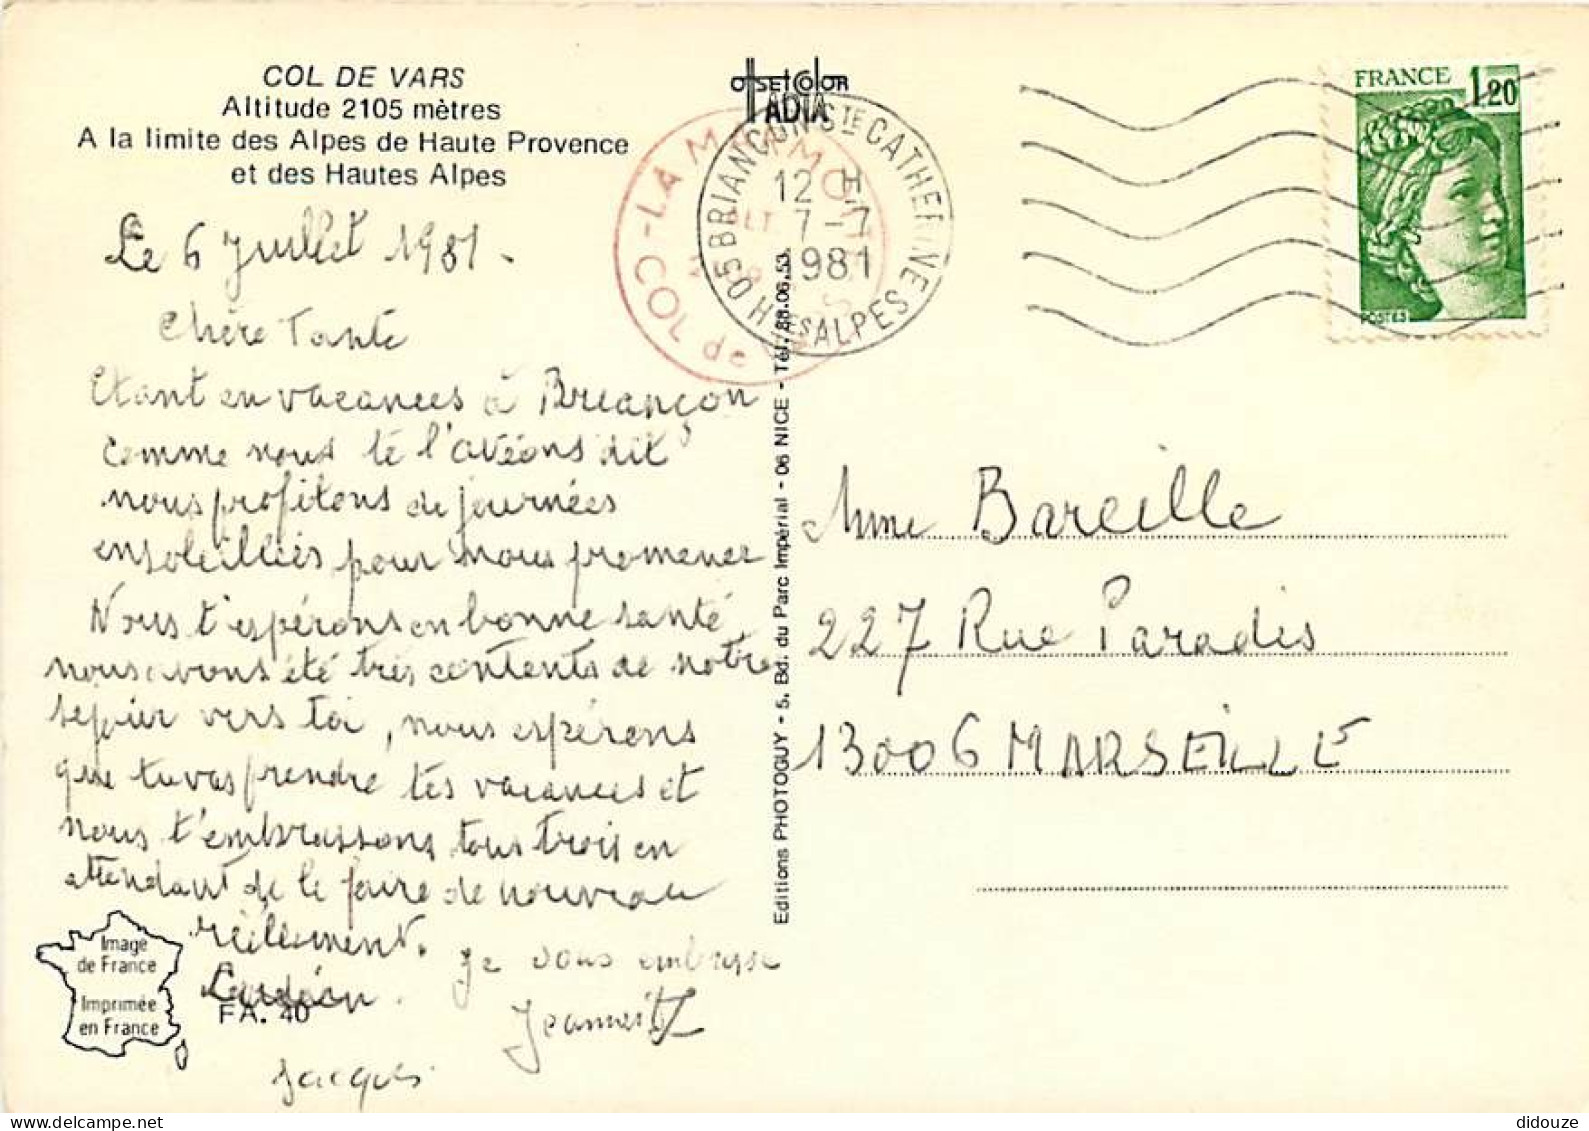 COL DE VARS
Altitude 2105 mètres
A la limite des Alpes de Haute Provence
et des Hautes Alpes
OffSEtCOlOR
TADIA
COL de
LA
05 BRIANCON STE CATHERINE
HTES ALPES
12 H
7-7
1981
FRANCE 1,20
POSTES
Le 6 Juillet 1981.
Chère Tante
Etant en vacances à Briançon
comme nous te l'avions dit
nous profitons de journées
ensoleillées pour nous promener
Nous t'espérons en bonne santé,
nous avons été très contents de notre
séjour vers toi, nous espérons
que tu vas prendre tes vacances et
nous t'embrassons tous trois en
attendant de le faire de nouveau
réellement.
je vous embrasse
Jacques
Image
de France
Imprimée
en France
FA. 40
Editions PHOTOGUY - 5, Bd. du Parc Impérial - 06 NICE - Tél. 88.06.53.
Mme Bareille
227 Rue Paradis
13006 MARSEILLE
didouze